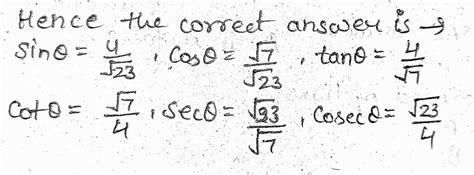 Hence the correct answer is →
sinθ = 4/√23 , Cosθ = √7/√23 , tanθ = 4/√7
Cotθ = √7/4 , secθ = √23/√7 , Cosecθ = √23/4